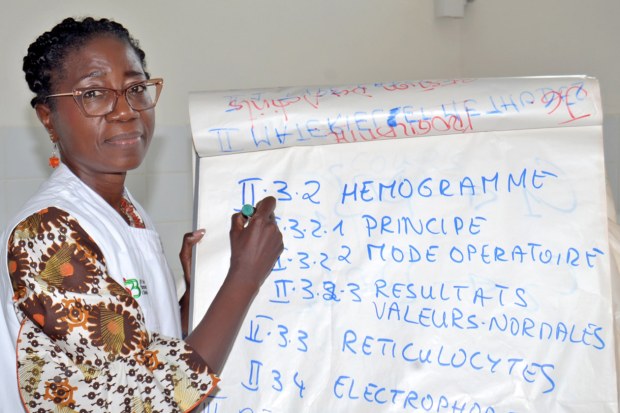 II MATERIEL ET METHODE
II.3.2 HEMOGRAMME
.3.2.1 PRINCIPE
I.3.2 2 MODE OPERATOIRE
II.3.2.3 RESULTATS
VALEURS-NORMALES
II.3.3 RETICULOCYTES
II 34 ELECTROPHO